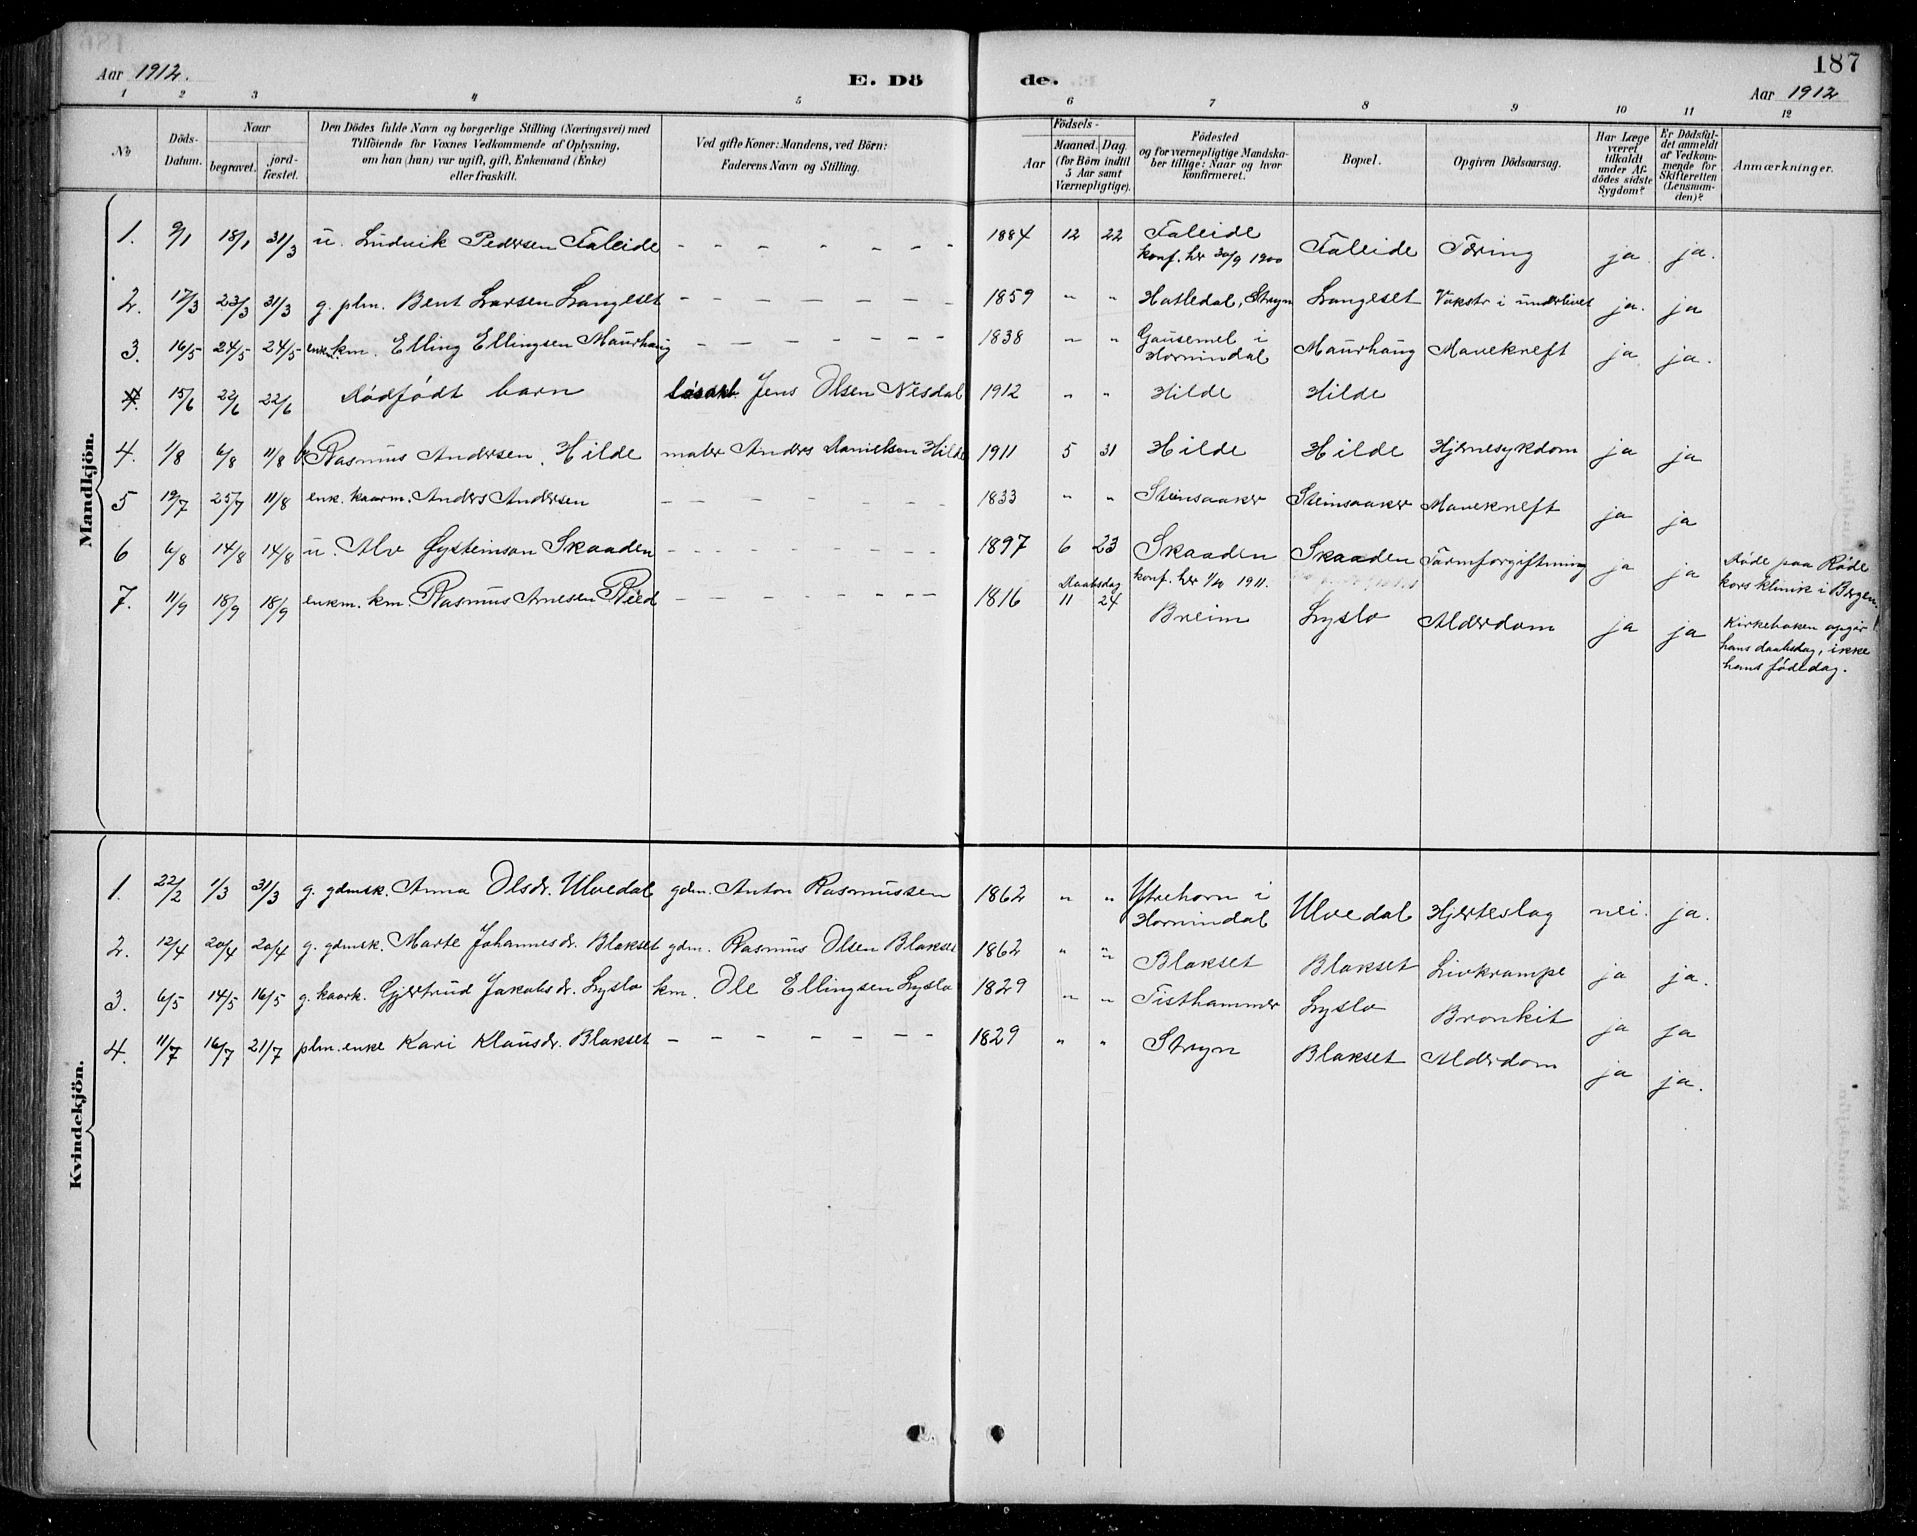 187
Aar 1912.
E. Döde.
Aar 1912
1 2 3 4 5 6 7 8 9 10 11 12
No
Döds-Datum.
Naar
begravet.
jord-fæstet.
Den Dödes fulde Navn og borgerlige Stilling (Næringsvei) med
Tilföiende for Voxnes Vedkommende af Oplysning,
om han (hun) var ugift, gift, Enkemand (Enke)
eller fraskilt.
Ved gifte Koner: Mandens, ved Börn:
Faderens Navn og Stilling.
Födsels-
Aar
Maaned. Dag
(for Börn indtil
5 Aar samt
Værnepligtige).
Födested
og for værnepligtige Mandska-
ber tillige: Naar og hvor
konfirmeret.
Bopæl.
Opgiven Dödsaarsag.
Har Læge
været
tilkaldt
under Af-
dödes sidste
Sygdom?
Er Dödsfal-
det anmeldt
af Vedkom-
mende for
Skifteretten
(Lensman-
den)?
Anmærkninger.
Mandkjön.
1. 9/1 18/1 31/3 u. Ludvik Pedersen Faleide - - - - - - - 1884 12 22 Faleide konf. her 30/9 1900 Faleide Tæring ja ja.
2. 17/3 23/3 31/3 g. plm. Bent Larsen Langeset - - - - - - - 1859 " " Hatledal, Stryn Langeset Vækstr i underlivet ja. ja
3. 16/5 24/5 24/5 enkm. km. Elling Ellingsen Maurhaug - - - - - - - 1838 " " Gausemel i Hornindal Maurhaug Mavekræft ja ja.
4. 15/6 22/6 22/6 Dødfødt barn Jens Olsen Nesdal 1912 " " Hilde Hilde
4. 1/8 6/8 11/8 b. Rasmus Andersen Hilde maler Anders Danielsen Hilde 1911 5 31 Hilde Hilde Hjernesykdom ja ja
5 19/7 25/7 11/8 enk. kaarm. Anders Andersen - - - - - - - 1833 " " Steinsaaker Steinsaaker Mavekræft ja ja
6 6/8 14/8 14/8 u. Alv Øysteinson Skaaden - - - - - - - 1897 6 23 Skaaden konf. her 1/10 1911. Skaaden Tarmforgiftning ja ja Døde paa Røde kors klinik i Bergen.
7. 11/9 18/9 18/9 enkm. km. Rasmus Anesen Reed - - - - - - - 1816 Daabsdag 11 24 Breim Lyslo Alderdom ja ja Kirkeboken opgir hans daabsdag, ikke hans fødedag.
Kvindekjön.
1. 22/2 1/3 31/3 g. gdmsk. Anna Olsdr. Ulvedal gdm. Anton Rasmussen 1862 " " Ytrehorn i Hornindal Ulvedal Hjerteslag nei. ja.
2. 12/4 20/4 20/4 g. gdmsk. Marte Johannesdr. Blakset gdm. Rasmus Olsen Blakset 1862 " " Blakset Blakset Livkrampe ja ja.
3. 6/5 14/5 16/5 g. kaark. Gjertrud Jakobsdr. Lyslo km. Ole Ellingsen Lyslo 1829 " " Tisthammer Lyslo Bronkit ja ja
4. 11/7 16/7 21/7 plm. enke Kari Klausdr. Blakset - - - - - - - 1829 " " Stryn Blakset Alderdom ja ja.